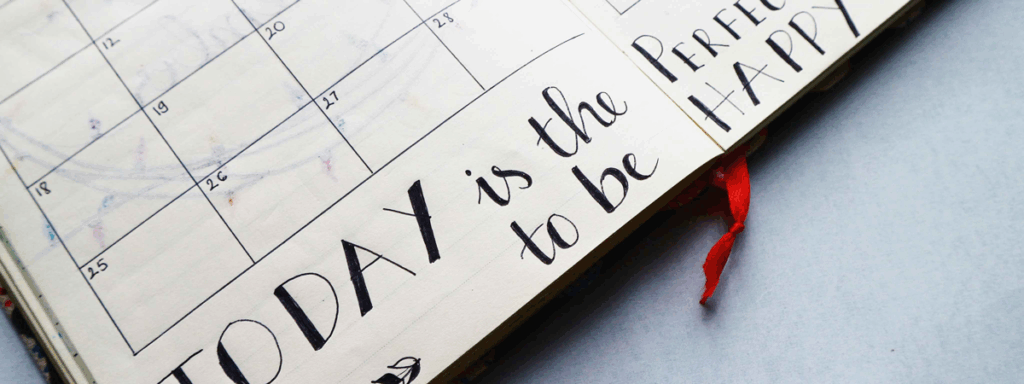 12
20
28
19
27
18
26
25
TODAY is the PERFEC
to be HAPPY